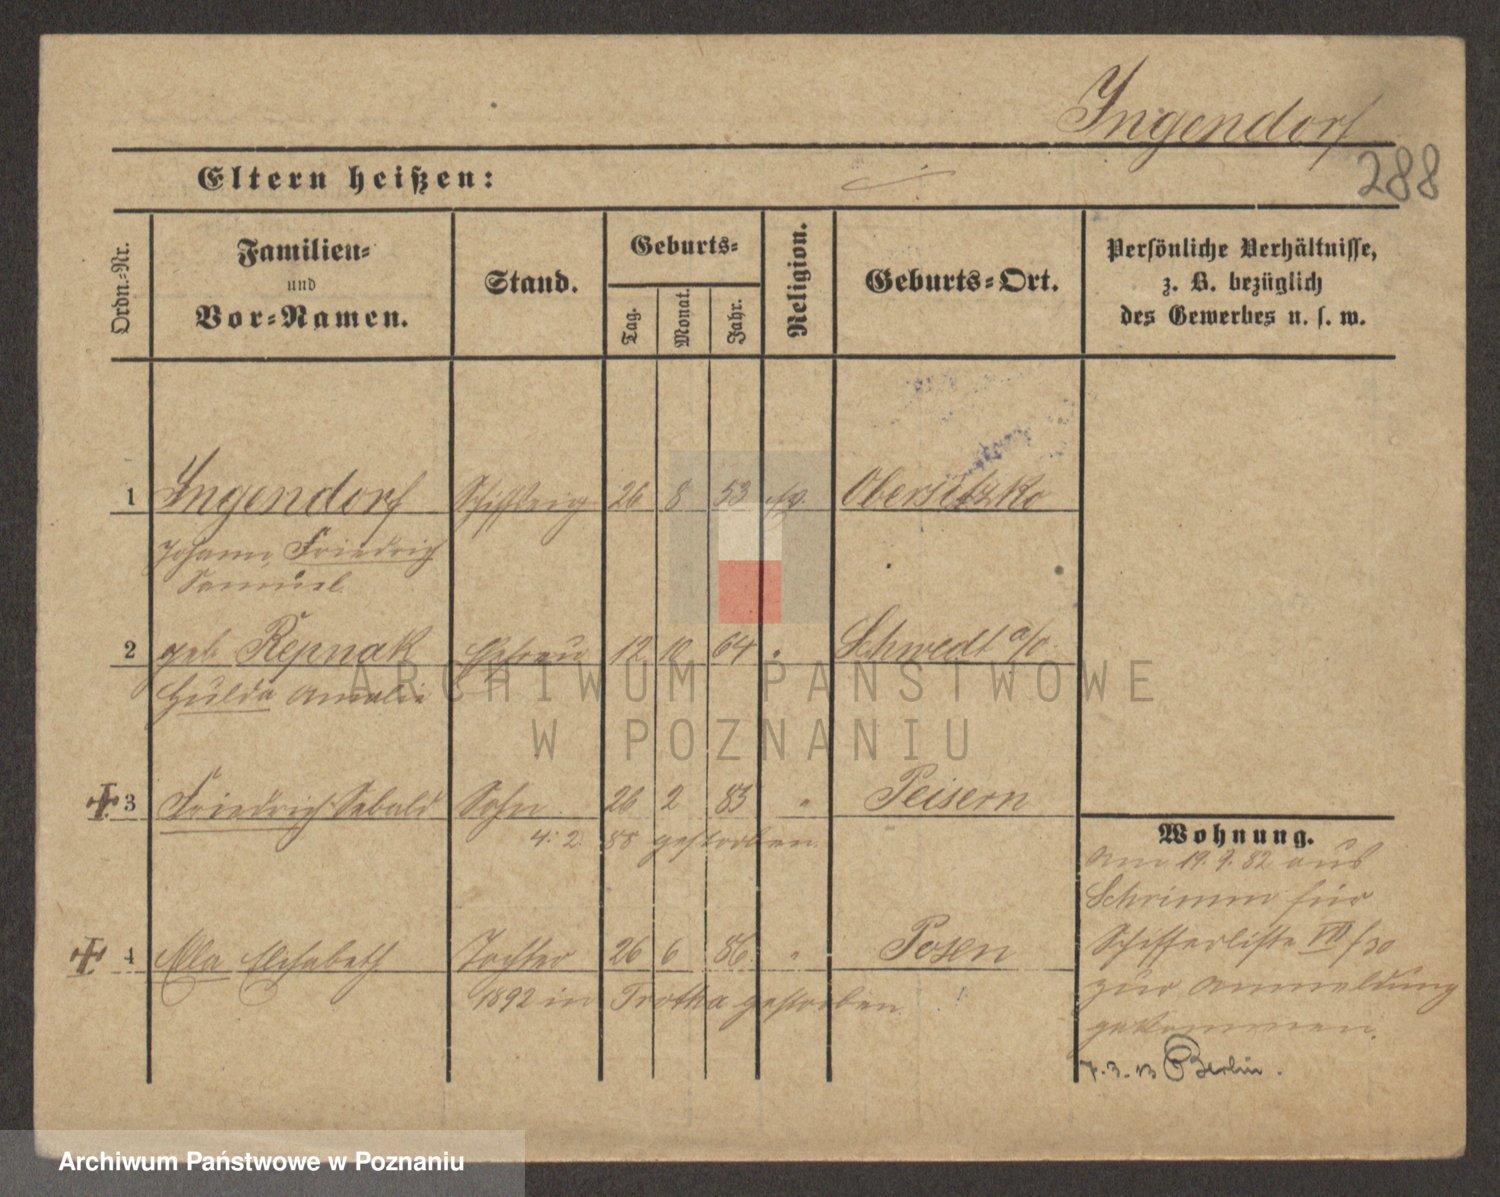 Ingendorf
288
Eltern heißen:
Ordn.-Nr.
Familien-
und
Vor-Namen.
Stand.
Geburts-
Tag.
Monat.
Jahr.
Religion.
Geburts-Ort.
Persönliche Verhältnisse,
z. B. bezüglich
des Gewerbes u. s. w.
1 Ingendorf 26 8 53 Obersitzko
Johann Friedrich
Samuel
2 geb. Repnak Ehefrau 12 10 64 " Schwedt a/O
Hulda Amalie
3 Friedrich Sebald Sohn 26 2 83 " Peisern
4. 2. 88 gestorben
4 Ella Elisabeth Tochter 26 6 86 " Posen
1892 in Trotha gestorben
Wohnung.
Am 19. 9. 82 aus
Schrimm für
Schifferliste VII/30
zur Anmeldung
gekommen.
7. 3. 93 Berlin.
ARCHIWUM PAŃSTWOWE
W POZNANIU
Archiwum Państwowe w Poznaniu